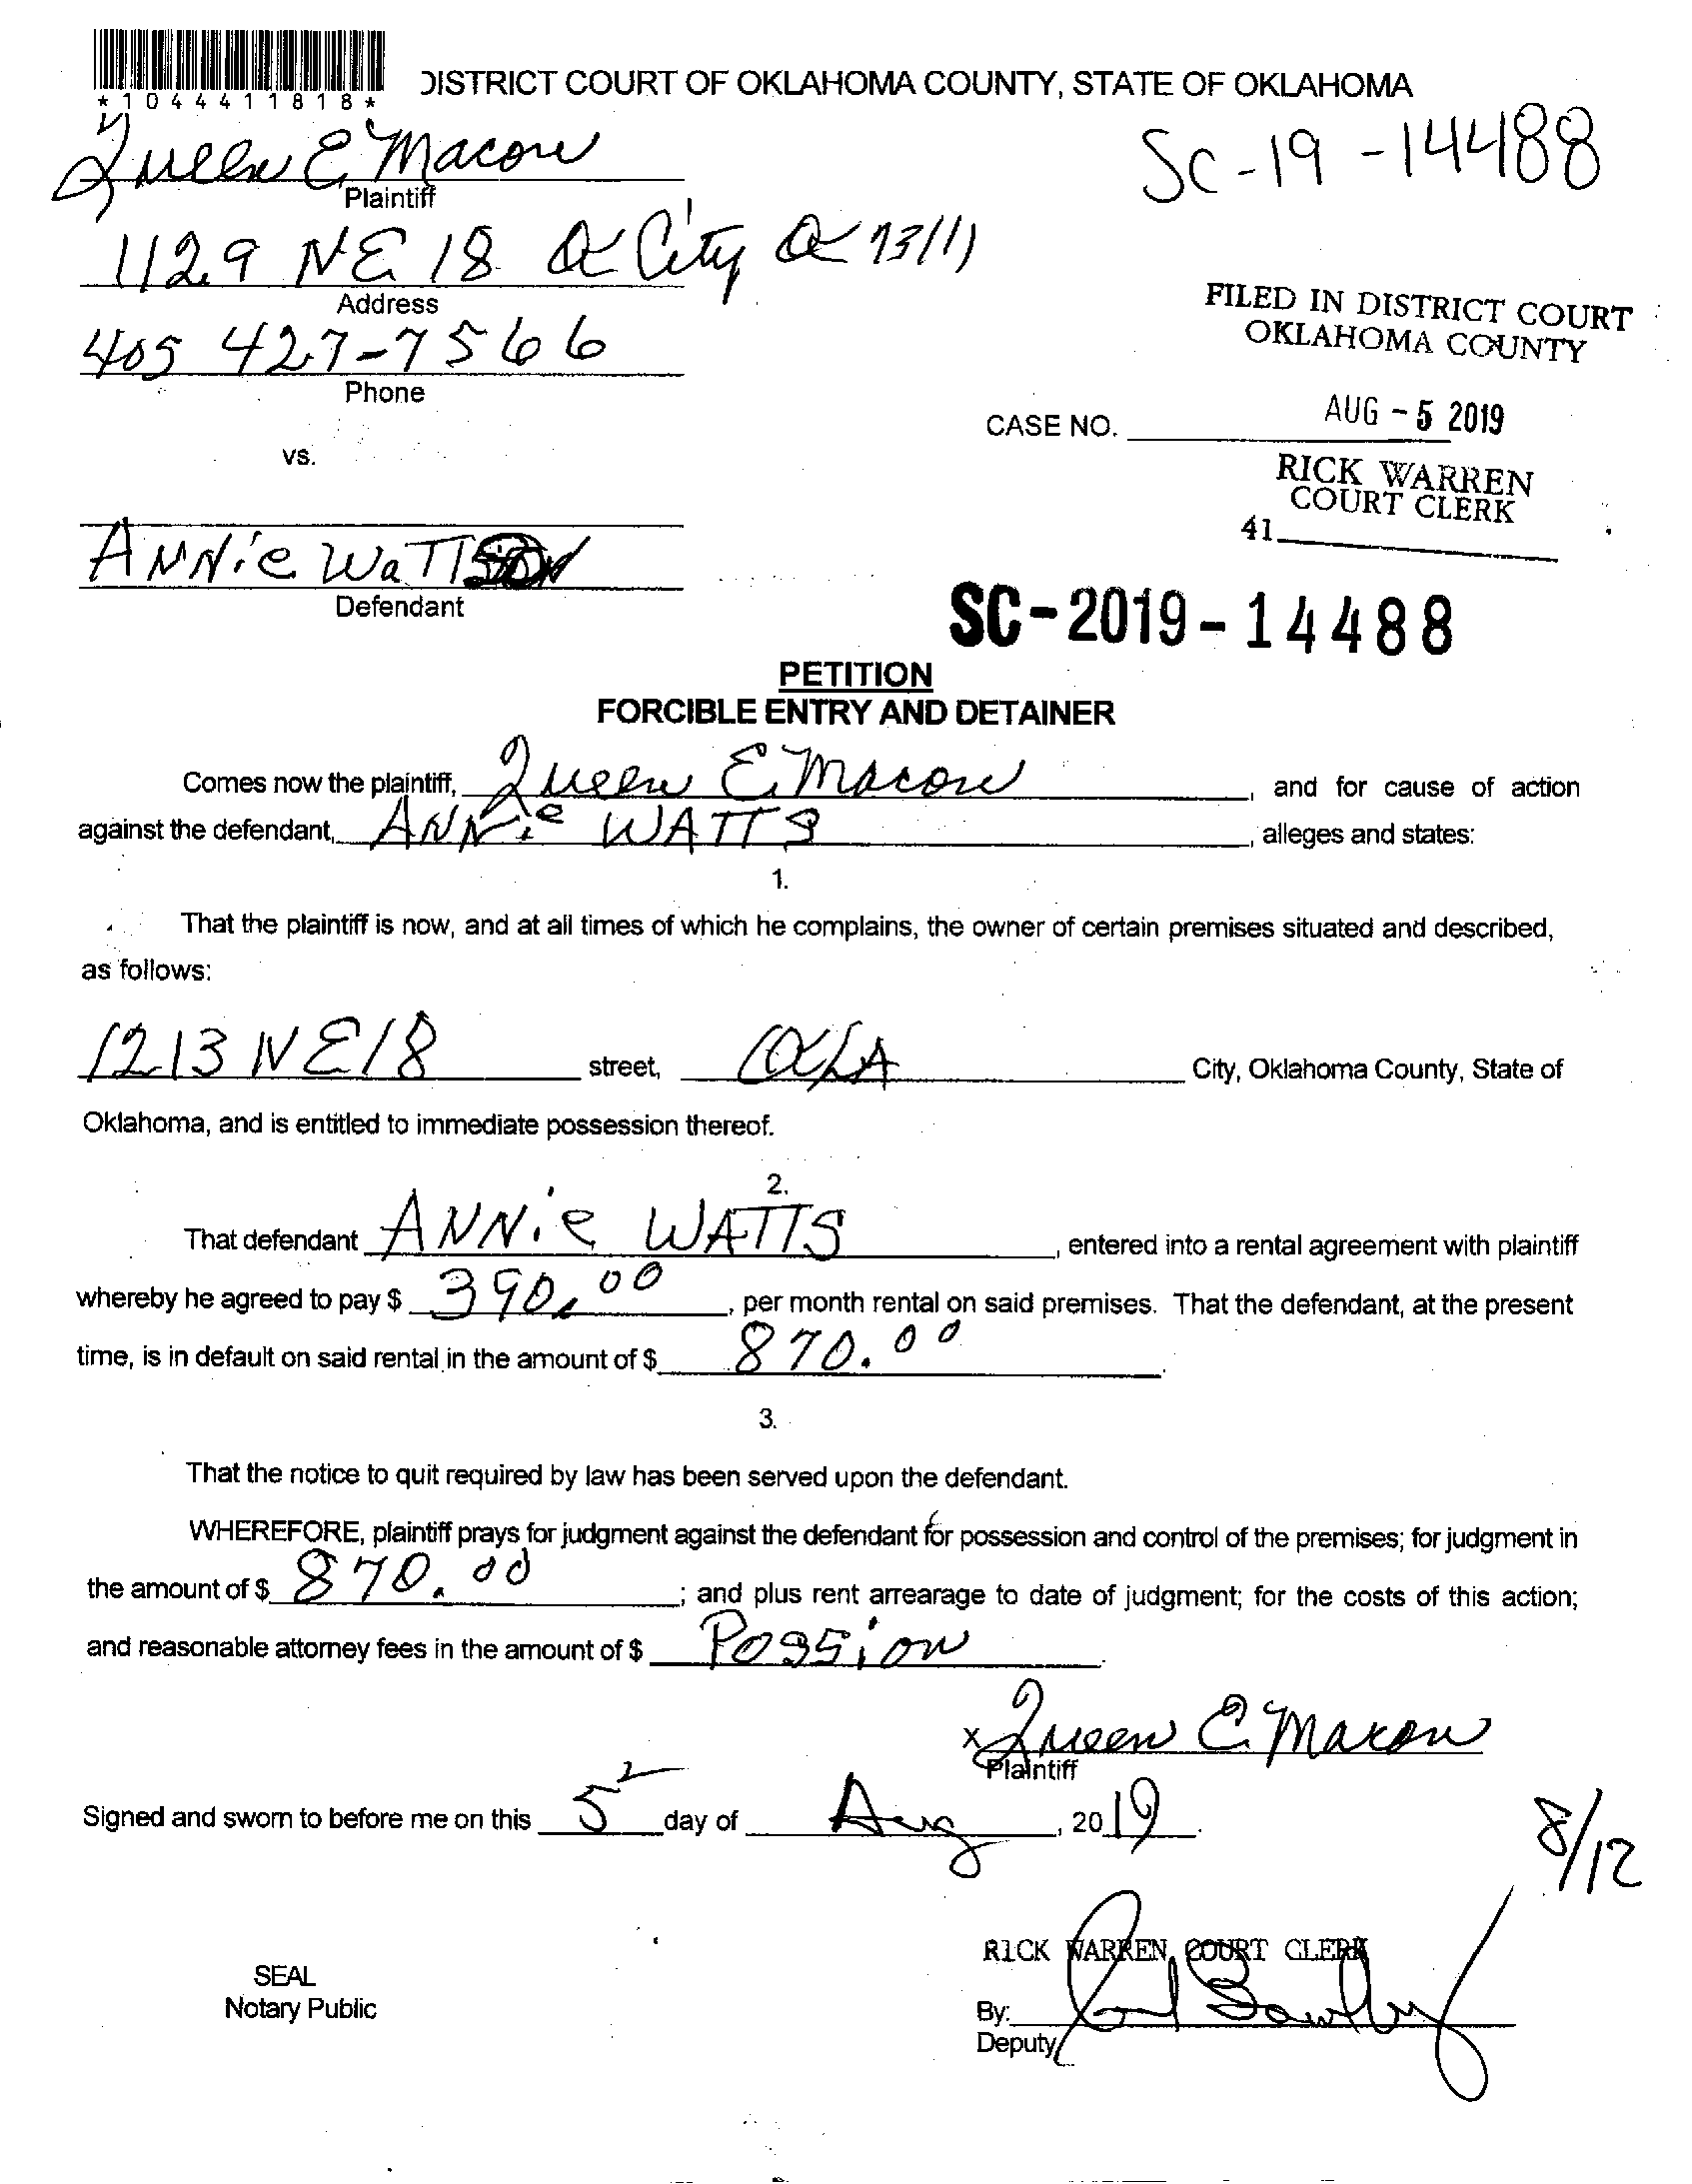 *1044411818*
DISTRICT COURT OF OKLAHOMA COUNTY, STATE OF OKLAHOMA
Queen E. Macon
Plaintiff
SC-19-14488
1129 NE 18 City 73111
Address
405 427-7566
Phone
FILED IN DISTRICT COURT
OKLAHOMA COUNTY
AUG - 5 2019
CASE NO.
vs.
RICK WARREN
COURT CLERK
41
ANNie
Defendant
SC-2019-14488
PETITION
FORCIBLE ENTRY AND DETAINER
Comes now the plaintiff, Queen E. Macon, and for cause of action
against the defendant, ANNie WATTS, alleges and states:
1.
That the plaintiff is now, and at all times of which he complains, the owner of certain premises situated and described,
as follows:
1213 NE 18 street, OKLA City, Oklahoma County, State of
Oklahoma, and is entitled to immediate possession thereof.
2.
That defendant ANNie WATTS, entered into a rental agreement with plaintiff
whereby he agreed to pay $ 390.00, per month rental on said premises. That the defendant, at the present
time, is in default on said rental in the amount of $ 870.00.
3.
That the notice to quit required by law has been served upon the defendant.
WHEREFORE, plaintiff prays for judgment against the defendant for possession and control of the premises; for judgment in
the amount of $ 870.00; and plus rent arrearage to date of judgment; for the costs of this action;
and reasonable attorney fees in the amount of $ Possion.
x Queen E. Macon
Plaintiff
Signed and sworn to before me on this 5 day of Aug, 2019.
8/12
RICK WARREN, COURT CLERK
SEAL
Notary Public
By:
Deputy